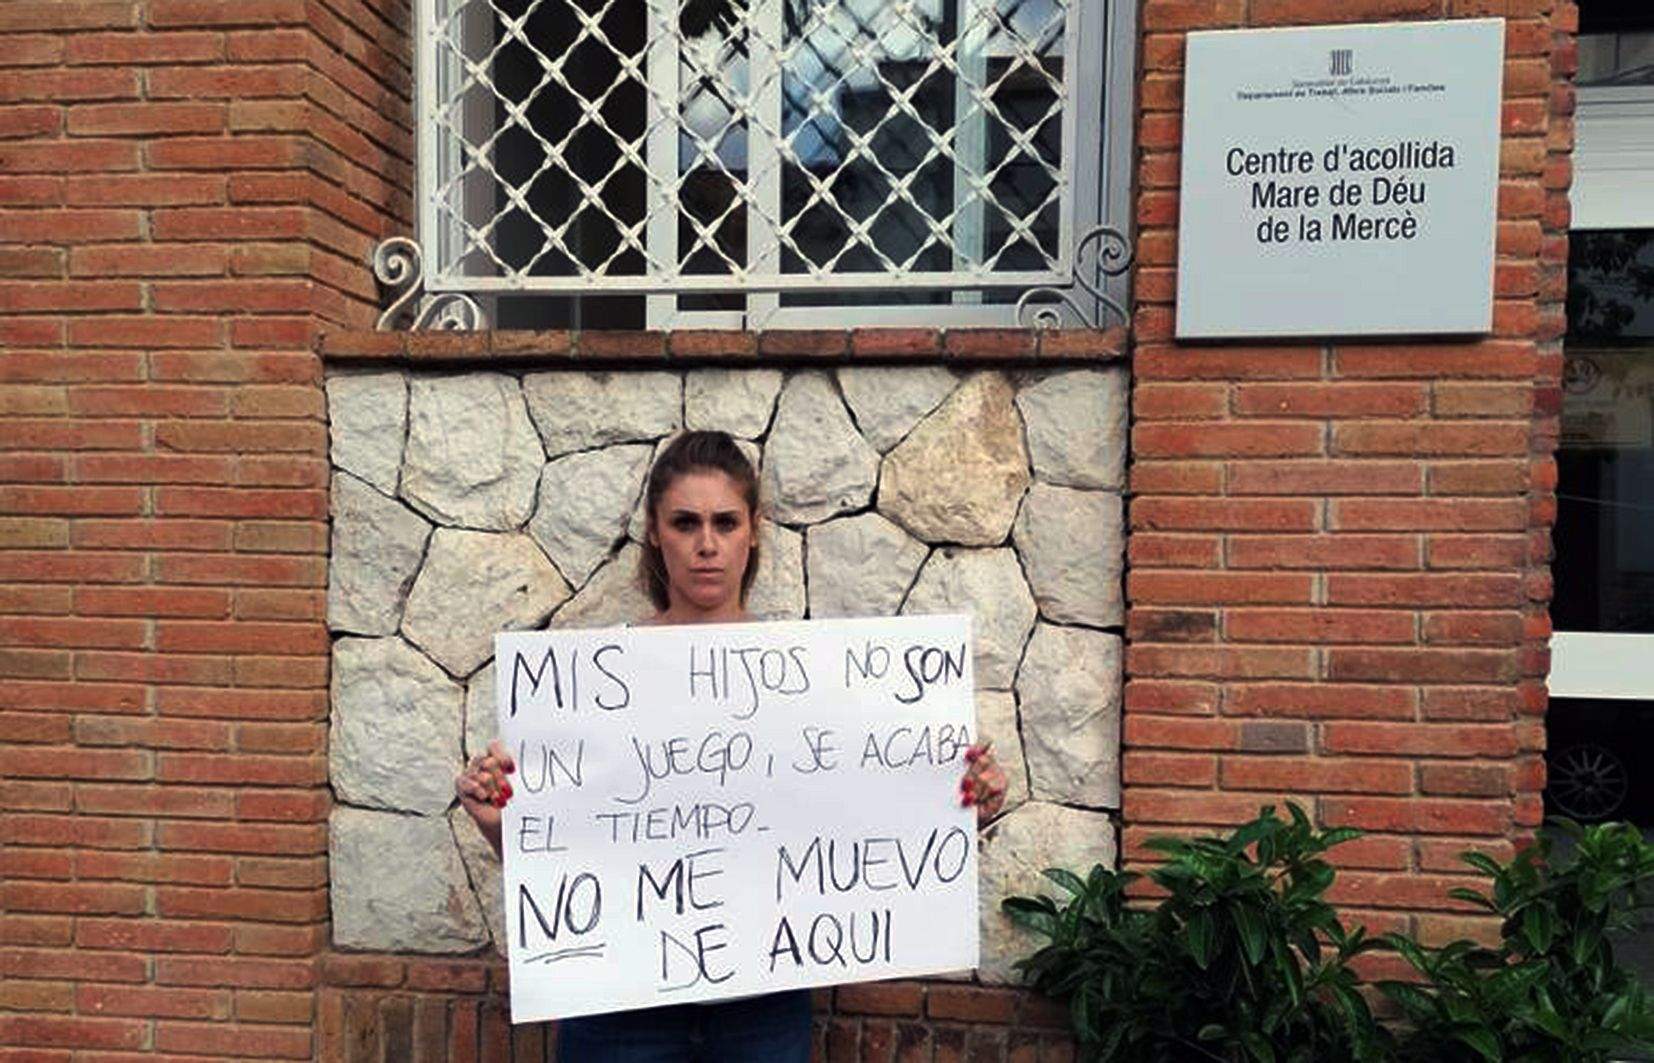 Generalitat de Catalunya
Departament de Treball, Afers Socials i Famílies
Centre d'acollida
Mare de Déu
de la Mercè
MIS HIJOS NO SON
UN JUEGO, SE ACABA
EL TIEMPO-
NO ME MUEVO
DE AQUI